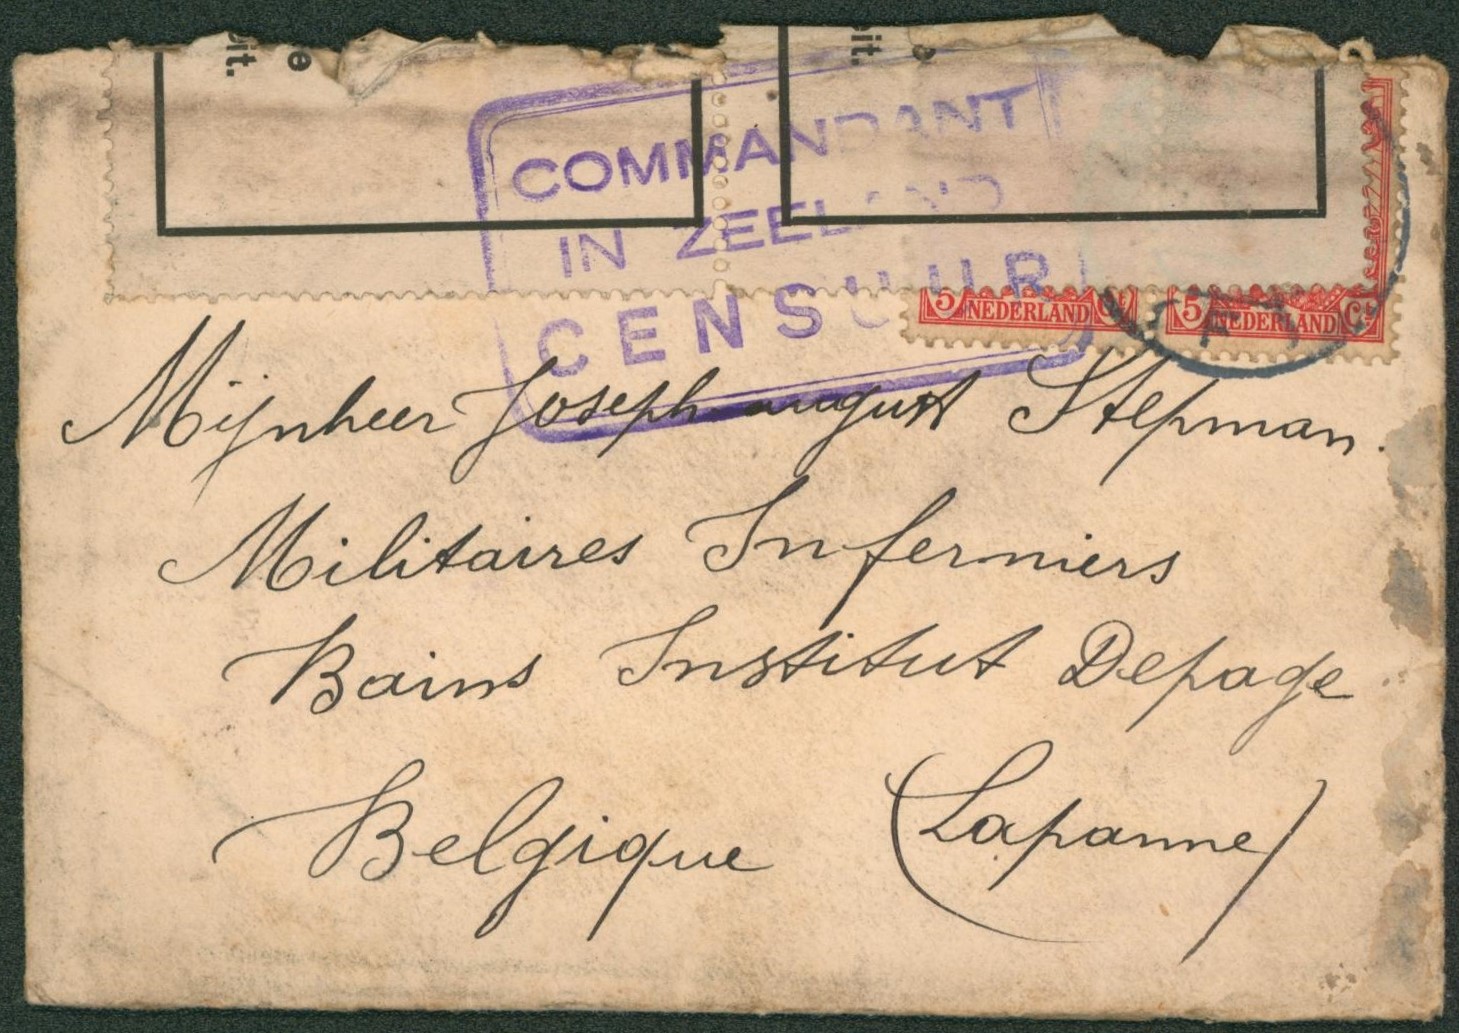 e
it.
e
it.
COMMANDANT
IN ZEELAND
CENSUUR
5 NEDERLAND Ct
5 NEDERLAND Ct
Mijnheer Joseph-august Stepman.
Militaires Infermiers
Bains Institut Depage
Belgique (Lapanne)